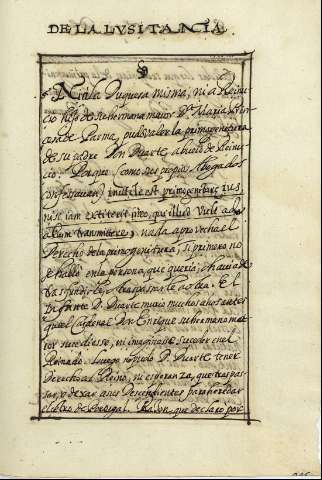 DE LA LVSITANIA.
§
Ni a la Duquesa misma, ni a Reinu-
cio hijo de su hermana maior Dª Maria Prin-
cesa de Parma, pudo valer la primogenitura
de su padre Don Duarte abuelo de Reinu-
cio. Porque (como sus propios Abogados
confessauan) inutile est primogeniturę ius,
nisi iam extiterit penes, qui illud vult ad
alium transmittere, nada aprovecha el
Derecho de la primogenitura, si primero no
se hablo en la persona, que queria, o hauia de
trasferirle, o traspasarle en otra. El
Infante D. Duarte murio muchos años antes
que el Cardenal Don Enrique su hermano ma-
ior sucediesse, ni imaginasse suceder en el
Reinado. Luego no pudo D. Duarte tener
Derecho al Reino, ni esperanza, que traspas-
sar, o dexar a sus Descendientes para heredar
el cetro de Portugal. Razon, que declaró por